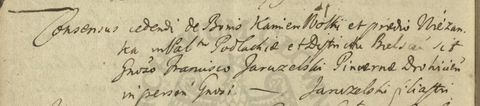 Consensus cedendi de Bonis Kamien Wolki et prædio Nieżan
ka in Pal. Podlachiæ et Districtu Bielsen sit
Gnoso Francisco Jaruzelski Pincernæ Drohicien
in person Gnosi — Jaruzelski